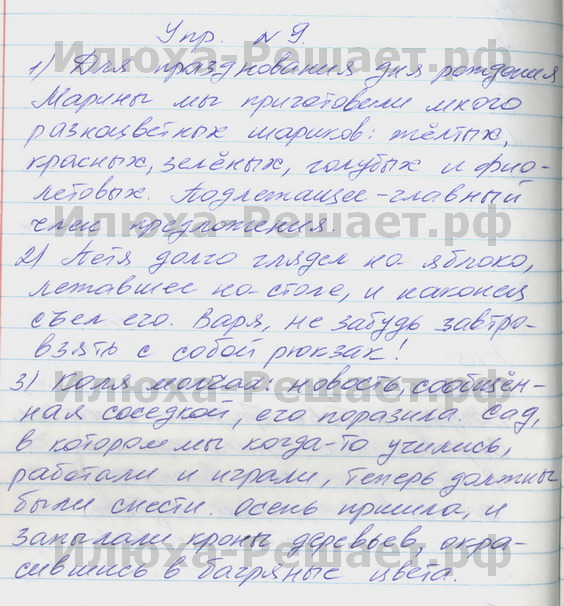 Упр. №9.
1) Для празднования дня рождения
Марины мы приготовили много
разноцветных шариков: жёлтых,
красных, зелёных, голубых и фио-
летовых. Подлежащее - главный
член предложения.
2) Петя долго глядел на яблоко,
лежавшее на столе, и наконец
съел его. Варя, не забудь завтра
взять с собой рюкзак!
3) Коля молчал: новость, сообщён-
ная соседкой, его поразила. Сад,
в котором мы когда-то учились,
работали и играли, теперь должны
были снести. Осень пришла, и
запылали кроны деревьев, окра-
сившись в багряные цвета.
Илюха-Решает.рф
Илюха-Решает.рф
Илюха-Решает.рф
Илюха-Решает.рф